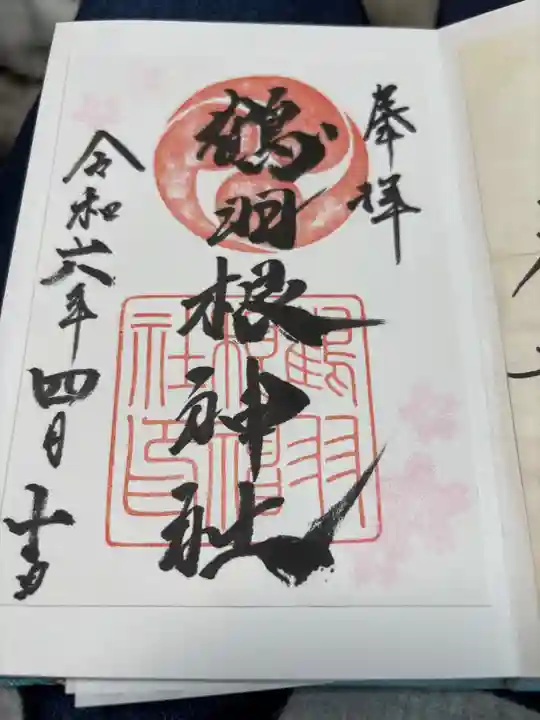 奉拝
鶴羽根神社
令和六年四月十五日
鶴羽
根神
社印